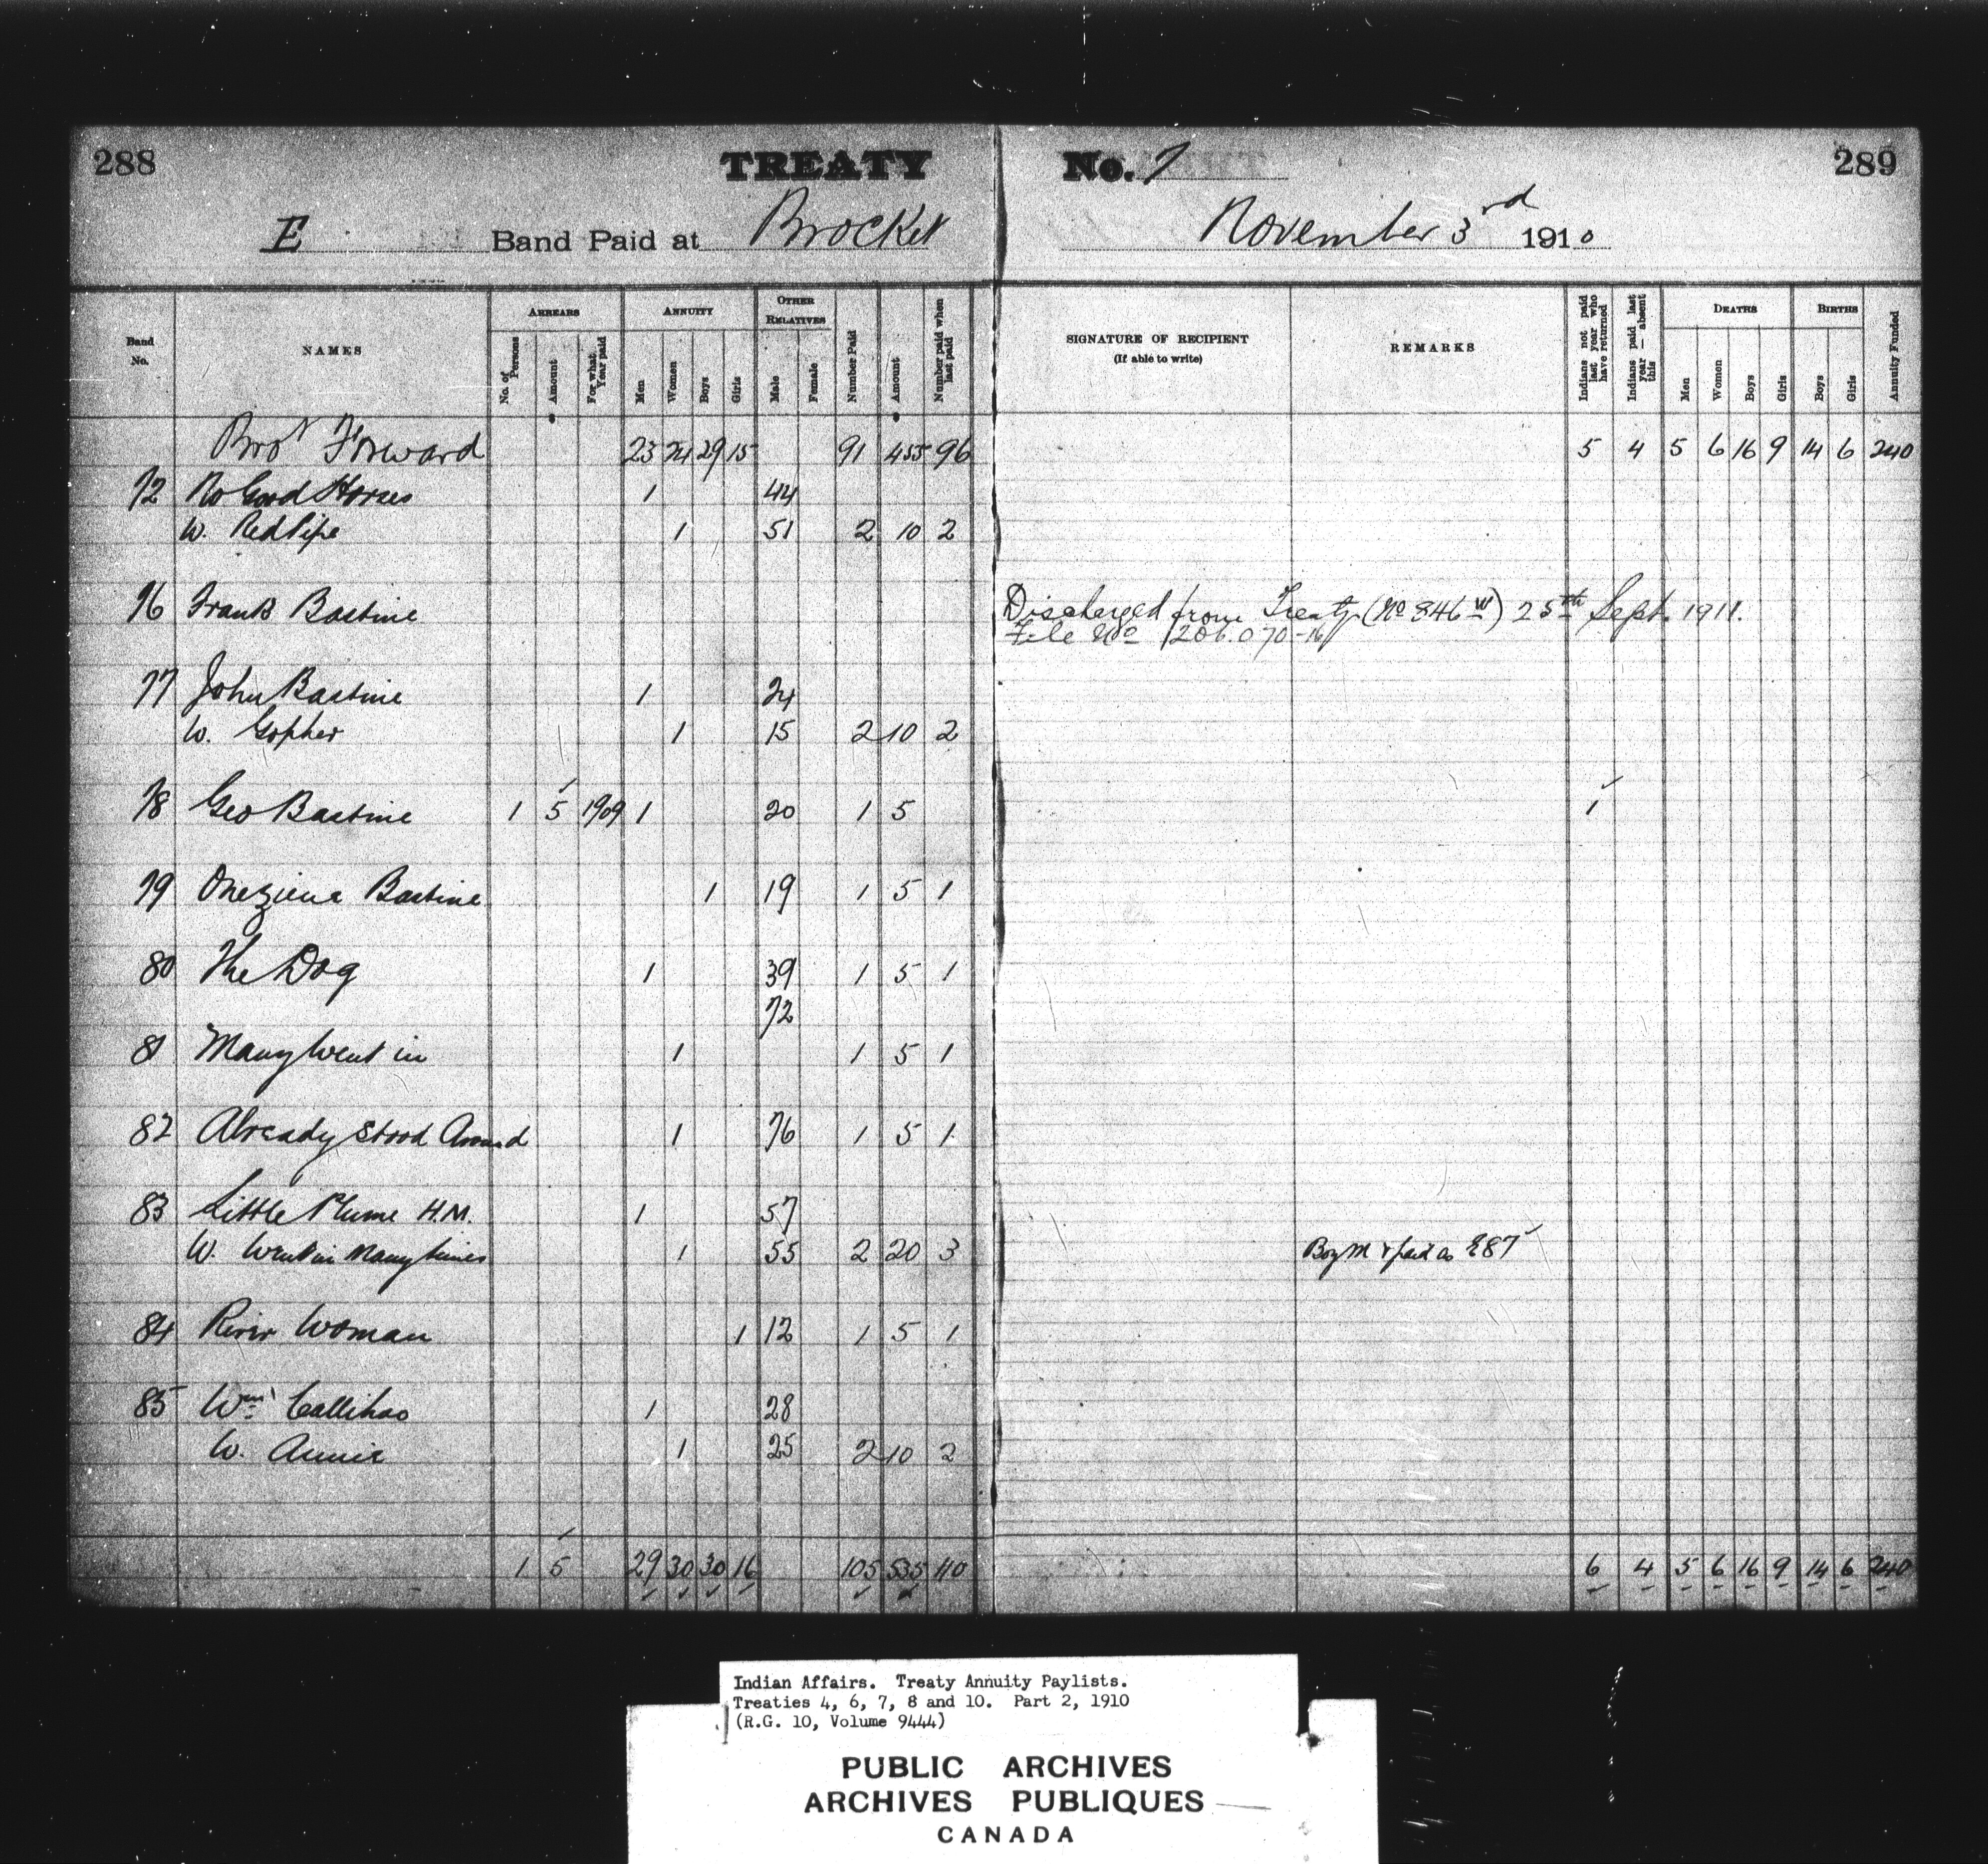 288 TREATY No. 7 289
E Band Paid at Brocket November 3rd 1910
Band No. NAMES ARREARS No. of Persons Amount For what Year paid ANNUITY Men Women Boys Girls OTHER RELATIVES Male Female Number Paid Amount Number paid when last paid SIGNATURE OF RECIPIENT (If able to write) REMARKS Indians not paid last year who have returned Indians paid last year — absent this DEATHS Men Women Boys Girls BIRTHS Boys Girls Annuity Funded
Brot Forward 23 24 29 15 91 455 96 5 4 5 6 16 9 14 6 240
72 No Good Horses 1 44
W. Red Pipe 1 51 2 10 2
76 Frank Bastine Discharged from Treaty (No 846 W) 25th Sept. 1911.
File No 206.070-16
77 John Bastine 1 24
W. Gopher 1 15 2 10 2
78 Geo Bastine 1 5 1909 1 20 1 5 1
79 Onezieua Bastine 1 19 1 5 1
80 The Dog 1 39 1 5 1
72
81 Many Went in 1 1 5 1
82 Already Stood Around 1 76 1 5 1
83 Little Plume H.M. 1 57
W. Went in Many times 1 55 2 20 3 Boy M & paid as E87
84 River Woman 1 12 1 5 1
85 Wm Callihoo 1 28
W. Annie 1 25 2 10 2
1 5 29 30 30 16 105 535 110 6 4 5 6 16 9 14 6 240
Indian Affairs. Treaty Annuity Paylists.
Treaties 4, 6, 7, 8 and 10. Part 2, 1910
(R.G. 10, Volume 9444)
PUBLIC ARCHIVES
ARCHIVES PUBLIQUES
CANADA